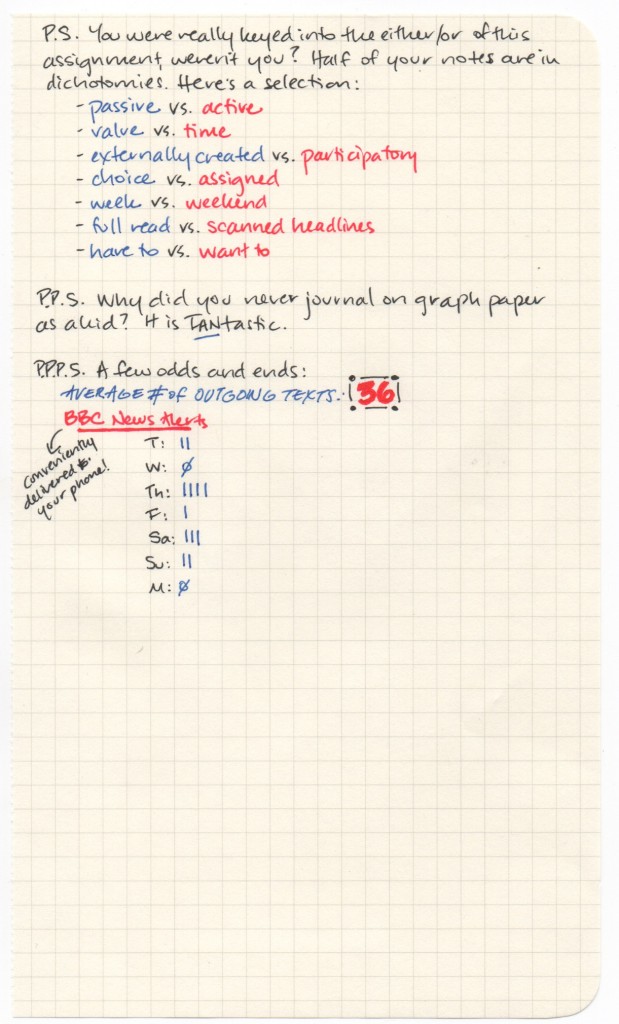 P.S. You were really keyed into the either/or of this
assignment, weren't you? Half of your notes are in
dichotomies. Here's a selection:
- passive vs. active
- value vs. time
- externally created vs. participatory
- choice vs. assigned
- week vs. weekend
- full read vs. scanned headlines
- have to vs. want to
P.P.S. Why did you never journal on graph paper
as a kid? It is TANtastic.
P.P.P.S. A few odds and ends:
AVERAGE # of OUTGOING TEXTS: 36
BBC News Alerts
conveniently
delivered to
your phone!
T: II
W: Ø
Th: IIII
F: I
Sa: III
Su: II
M: Ø